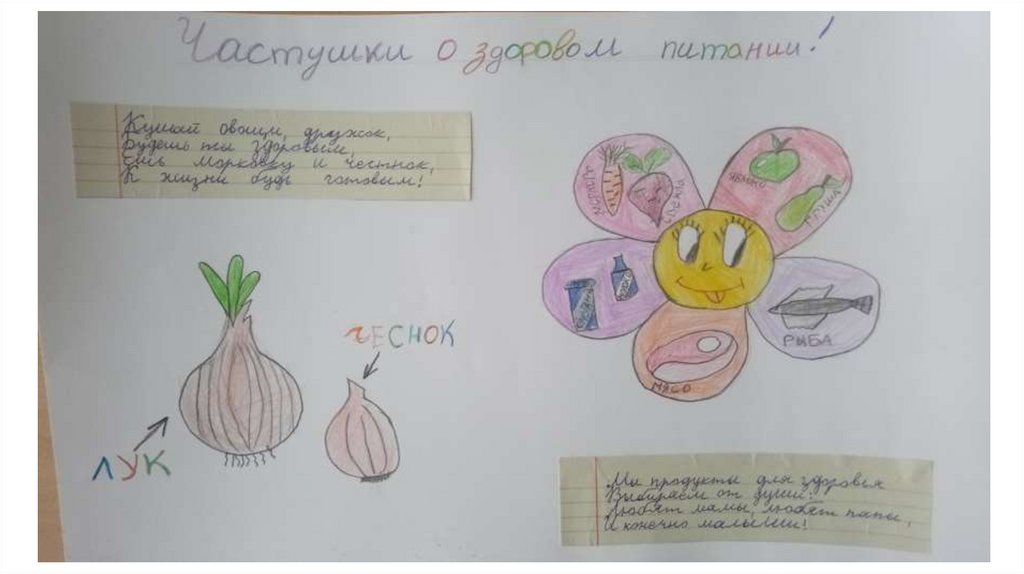 Частушки о здоровом питании!
Кушай овощи, дружок,
Будешь ты здоровым,
Ешь морковку и чеснок,
К жизни будь готовым!
МОРКОВЬ
СВЕКЛА
ЯБЛОКО
ГРУША
РЫБА
МЯСО
ЧЕСНОК
ЛУК
Мы продукты для здоровья
Выбираем от души:
Любят мамы, любят папы,
И конечно малыши!